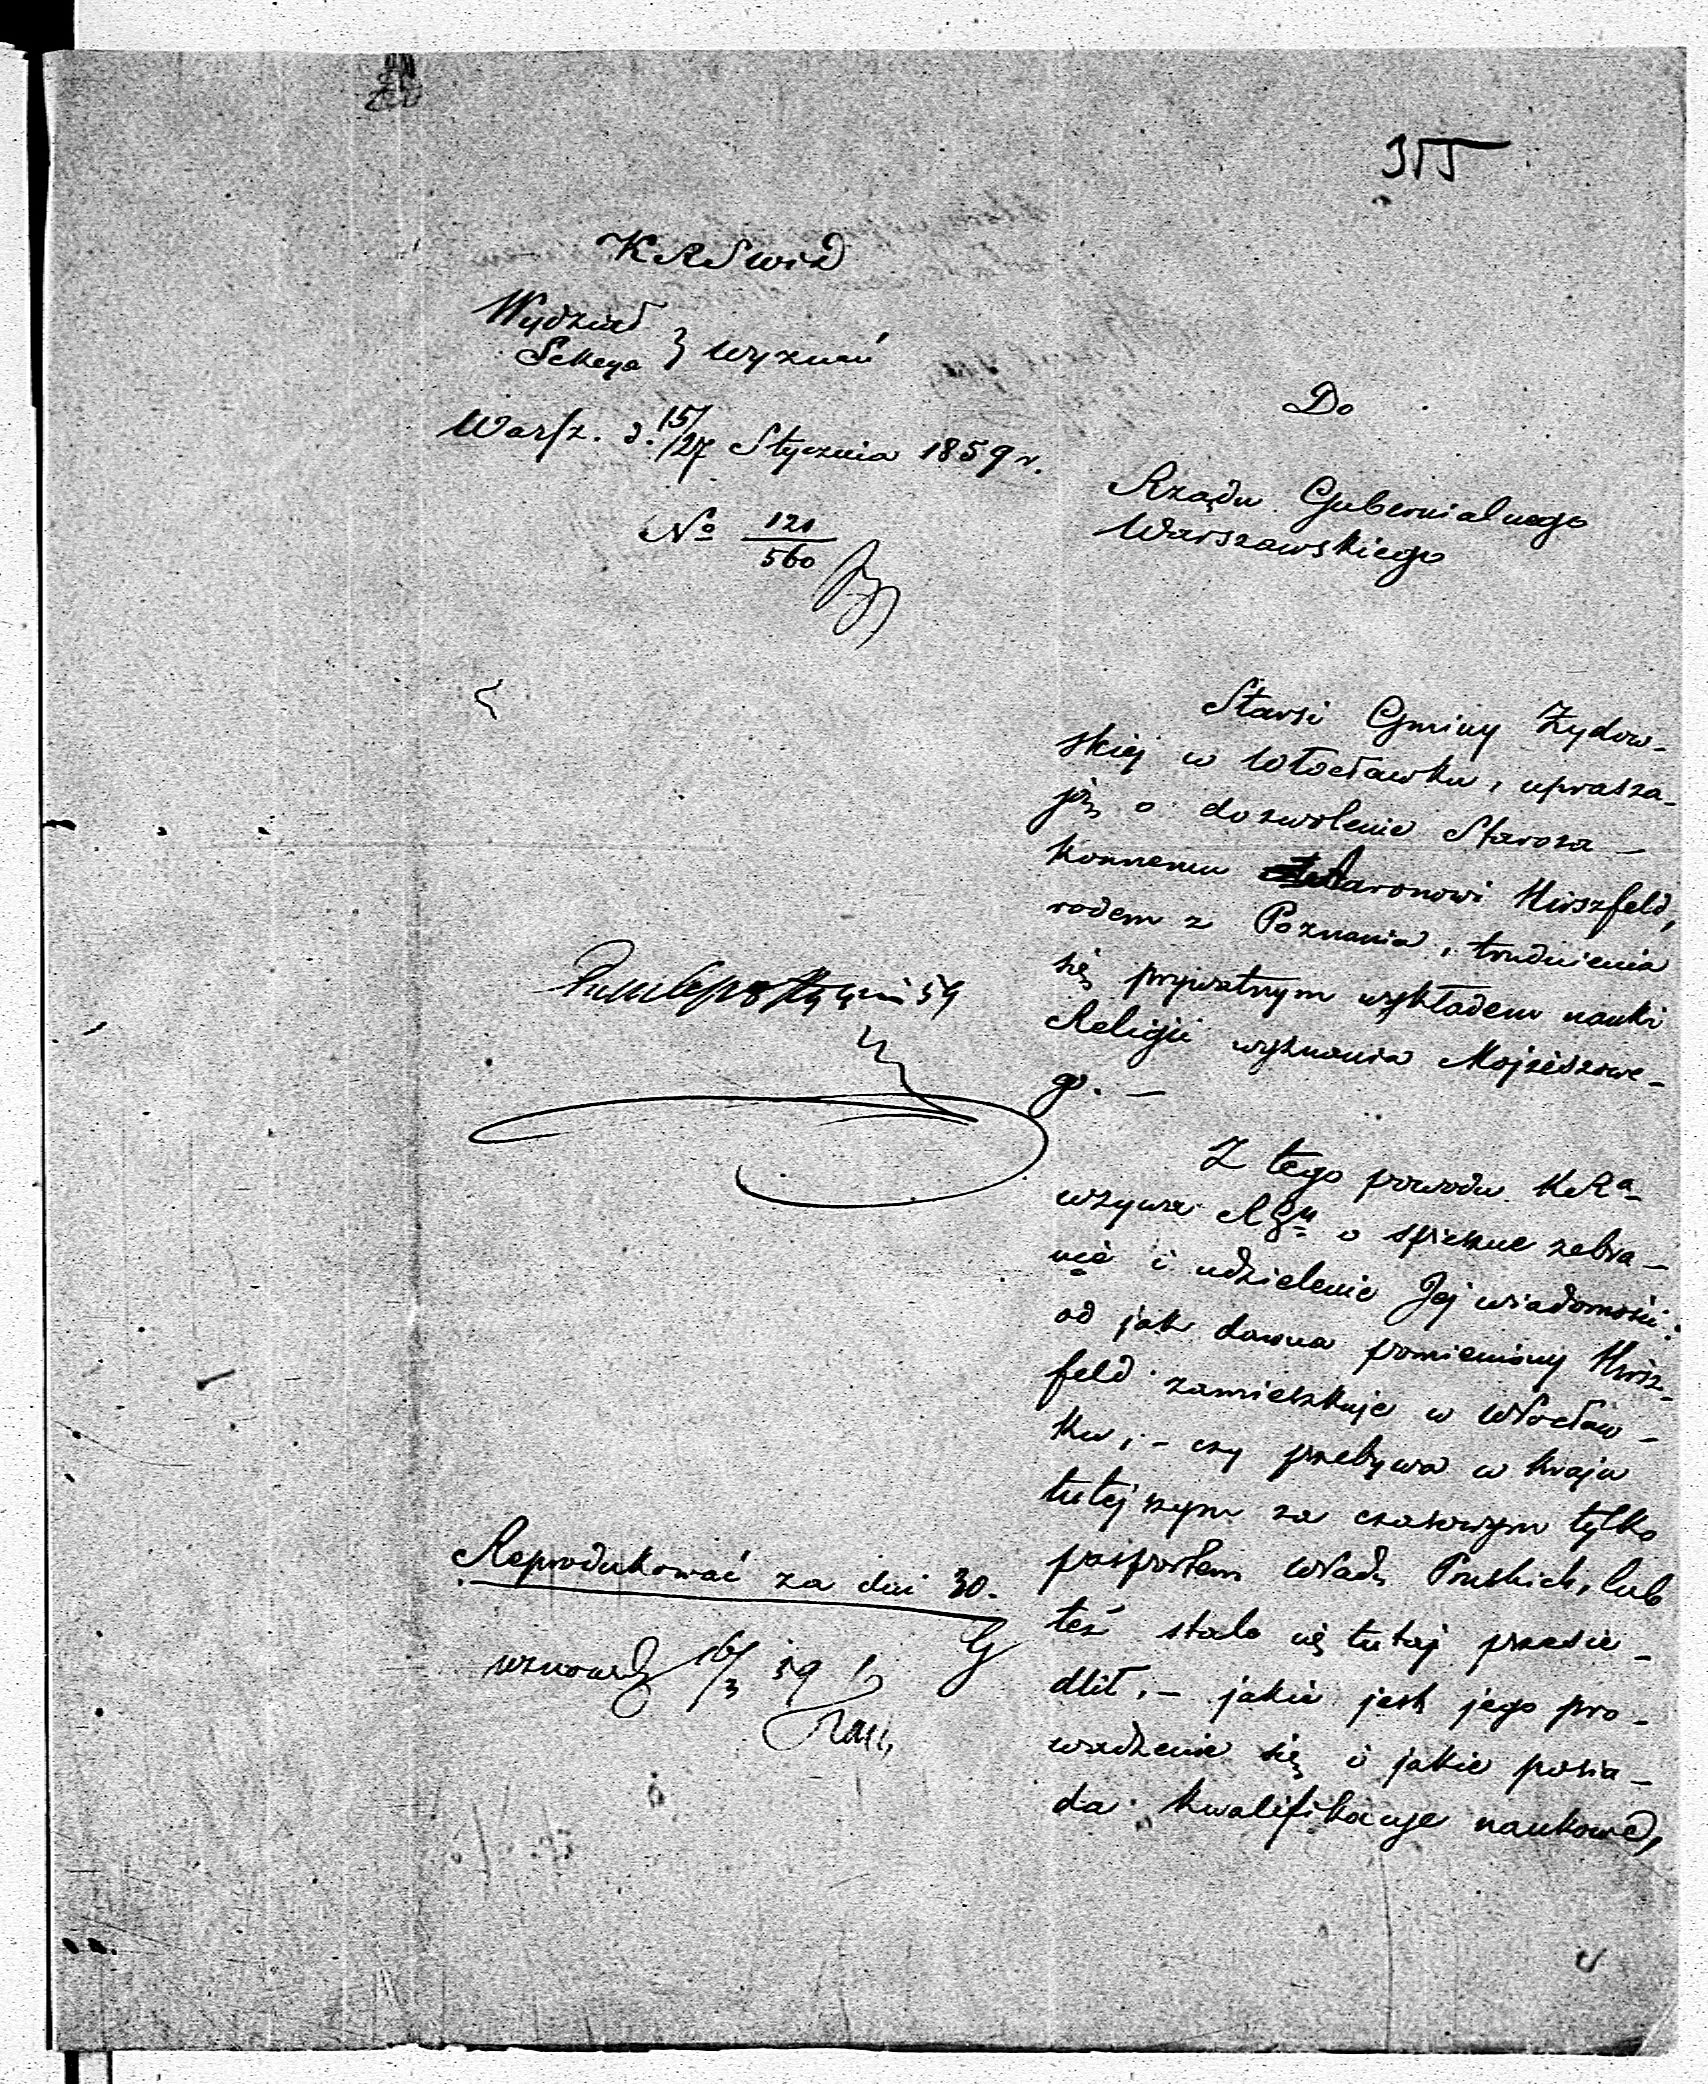 355
KRSWiD
Wydział
Sekcya } Wyznań
Warsz. d. 15/27 Stycznia 1859 r.
No 121/560
Do
Rządu Gubernialnego
Warszawskiego
Starsi Gminy Żydow-
skiej w Włocławku, uprasza-
ją o dozwolenie Staroza-
konnemu Aaronowi Hirszfeld,
rodem z Poznania, trudnienia
się prywatnym wykładem nauki
Religii wyznania Mojżeszowe-
go. —
Z tego powodu KRa-
wzywa RGu o spieszne zebra-
nie i udzielenie Jej wiadomości:
od jak dawna pomieniony Hirsz-
feld zamieszkuje w Włocław-
ku, - czy przebywa w kraju
tutejszym za czasowym tylko
pasportem Władz Pruskich, lub
też stale się tutaj przesie-
dlił, - jakie jest jego pro-
wadzenie się i jakie posia-
da kwalifikacyje naukowe,
59
Reprodukować za dni 30.
16/3 59